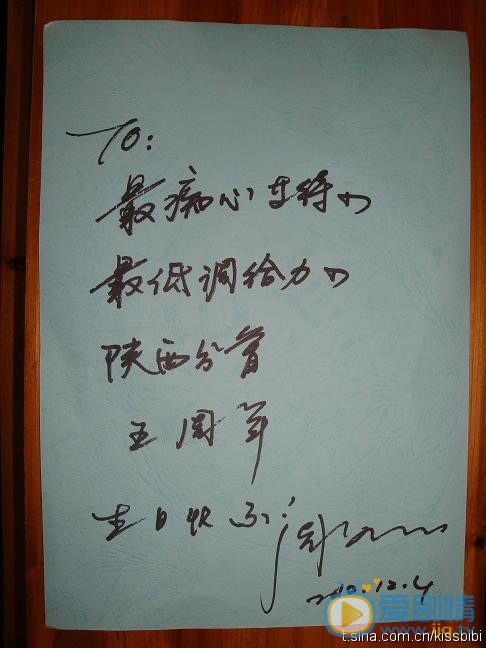 TO:
最痴心支持的
最低调给力的
陕西分會
五周年
生日快乐!
2010.12.4
爱剧情
www.ijq.tv
t.sina.com.cn/kissbibi